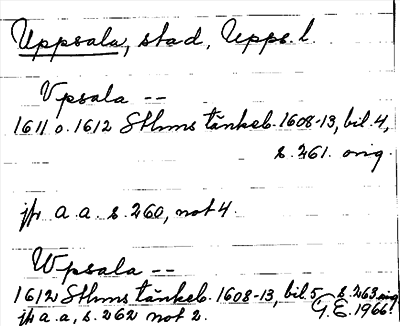 Uppsala, stad, Upps. l.
Vpsala --
1611 o. 1612 Sthms tänkeb. 1608-13, bil. 4,
s. 261. orig.
jfr a. a. s. 260, not 4.
Wpsala --
1612 Sthms tänkeb. 1608-13, bil. 5, s. 263 orig.
jfr a. a, s. 262 not 2. G. E. 1966.